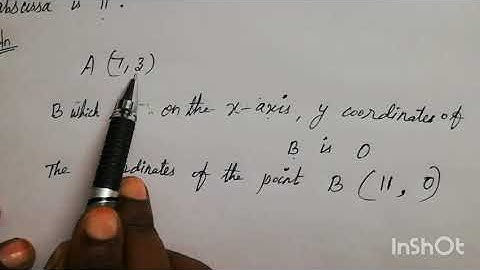 abscissa is 11.
Soln
A (7, 3)
B which on the x-axis, y coordinates of
B is 0
The coordinates of the point B (11, 0)
InShOt